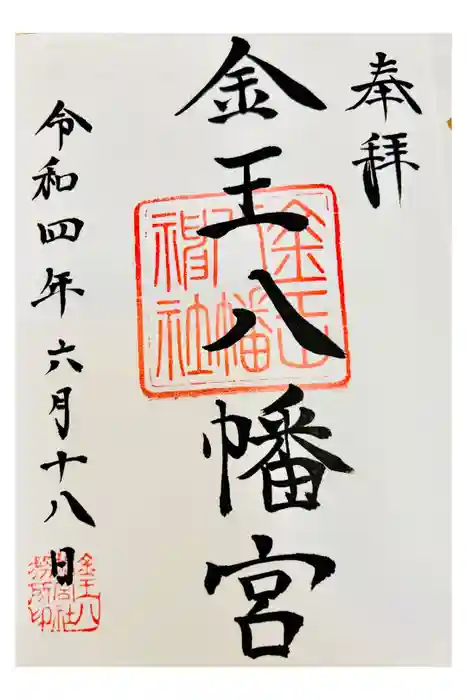 奉拝
金王八幡宮
金王
八幡
神社
令和四年六月十八日
金王八
幡宮社
務所印